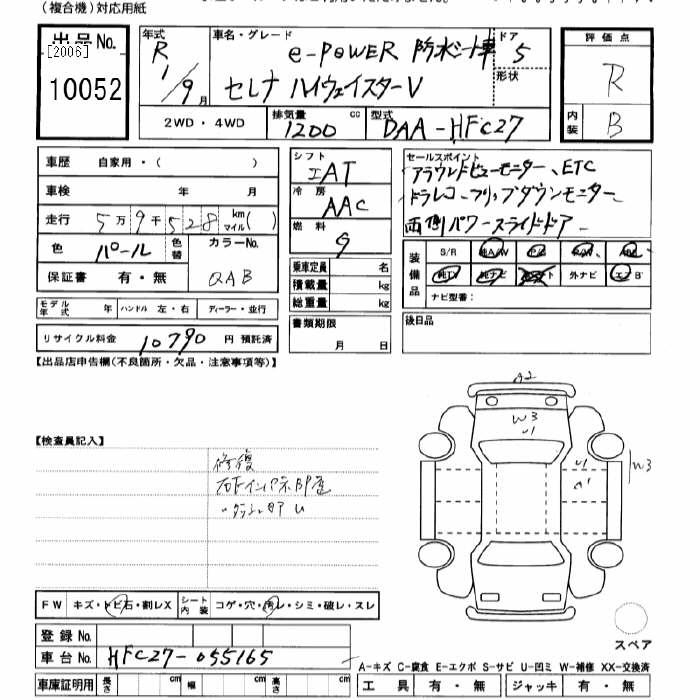 (複合機)対応用紙
出品No.
[2006]
10052
年式
R 1/9月
車名・グレード
e-POWER 防水シート車
セレナ ハイウェイスターV
ドア
5
形状
2WD・4WD
排気量
1200 cc
型式
DAA-HFC27
評価点
R
内装
B
車歴 自家用・( )
車検 年 月
走行 5万9千528 km マイル( )
色 パール 色替
カラーNo.
QAB
保証書 有・無
モデル年式 年 ハンドル 左・右 ディーラー・並行
リサイクル料金 10790 円 預託済
シフト
IAT
冷房
AAC
燃料
G
乗車定員 名
積載量 kg
総重量 kg
書類期限
月 日
セールスポイント
アラウンドビューモニター、ETC
ドラレコ、フリップダウンモニター
両側パワースライドドア
装備品
S/R 純AW PS PW
純TV 純ナビ 外ナビ エアB
ナビ型番:
後日品
【出品店申告欄(不良箇所・欠品・注意事項等)】
【検査員記入】
修復
A2
W3
U1
U1
A1
W3
スペア
FW キズ・トビ石・割レX シート内装 コゲ・穴・汚レ・シミ・破レ・スレ
登録No.
車台No. HFC27-055165
車庫証明用 長さ cm 幅 cm 高さ cm
A-キズ C-腐食 E-エクボ S-サビ U-凹ミ W-補修 XX-交換済
工具 有・無 ジャッキ 有・無